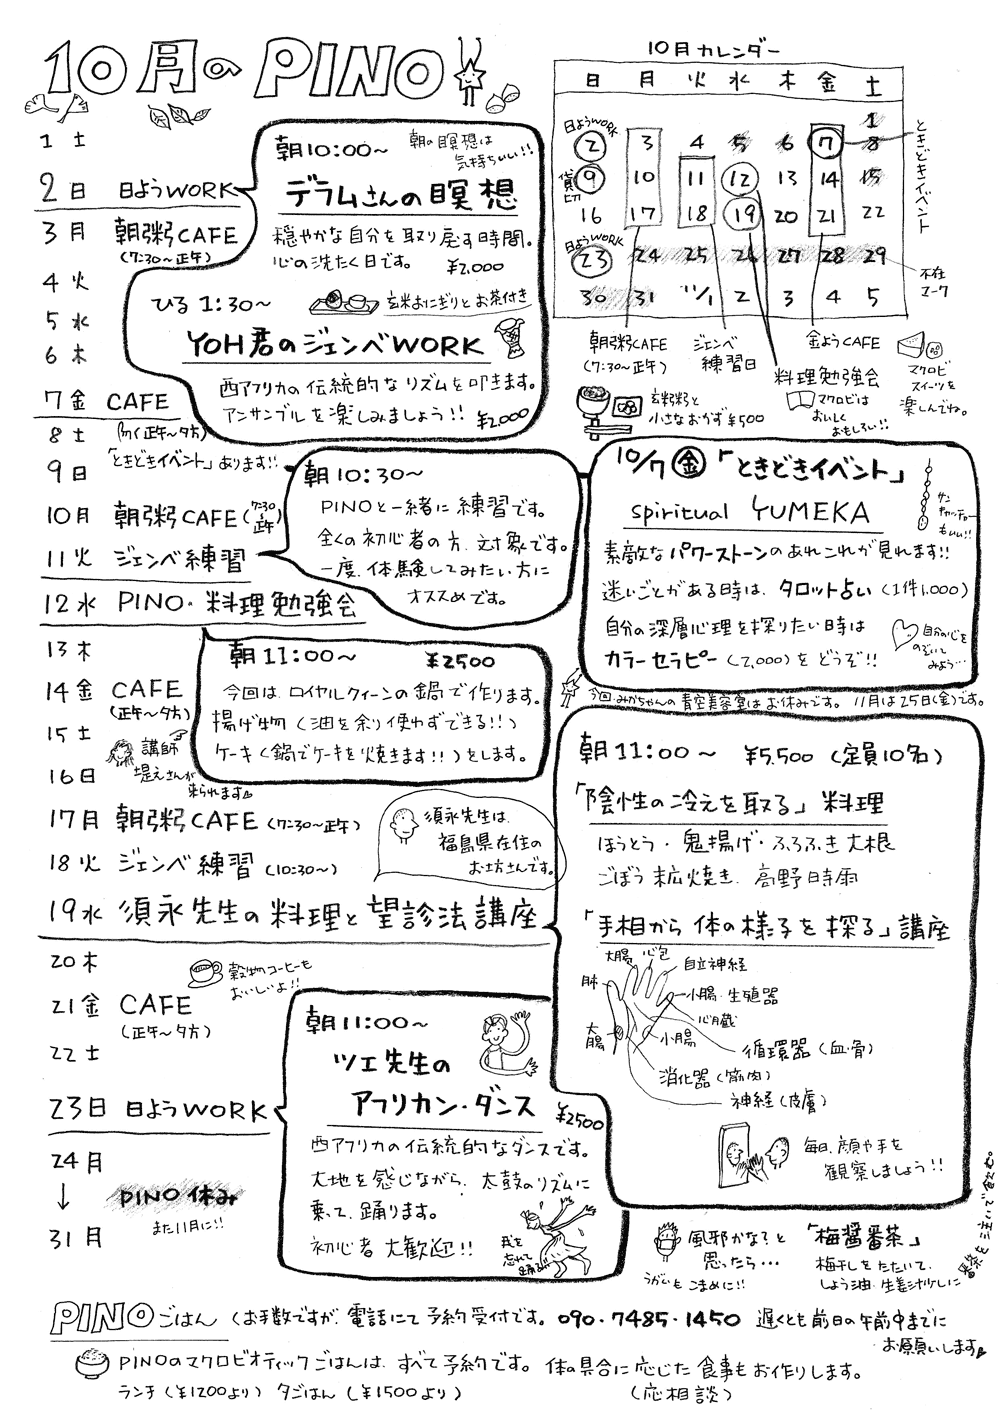 10月のPINO
1 土
2 日 日ようWORK
3 月 朝粥CAFE
(7:30〜正午)
4 火
5 水
6 木
7 金 CAFE
(正午〜夕方)
「ときどきイベント」あります!!
8 土
9 日
10 月 朝粥CAFE (7:30〜正午)
11 火 ジェンベ練習
12 水 PINO・料理勉強会
13 木
14 金 CAFE
(正午〜夕方)
15 土
講師
堤えさんが
来られます
16 日
17 月 朝粥CAFE (7:30〜正午)
18 火 ジェンベ練習 (10:30〜)
19 水 須永先生の料理と望診法講座
20 木
穀物コーヒーも
おいしいよ!!
21 金 CAFE
(正午〜夕方)
22 土
23 日 日ようWORK
24 月
↓ PINO 休み
また11月に!!
31 月
朝10:00〜
朝の瞑想は
気持ちいい!!
デラムさんの瞑想
穏やかな自分を取り戻す時間。
心の洗たく日です。 ¥2,000
ひる 1:30〜
玄米おにぎりとお茶付き
YOH君のジェンベWORK
西アフリカの伝統的なリズムを叩きます。
アンサンブルを楽しみましょう!! ¥2,000
朝10:30〜
PINOと一緒に練習です。
全くの初心者の方、対象です。
一度、体験してみたい方に
オススメです。
朝11:00〜 ¥2500
今回は、ロイヤルクィーンの鍋で作ります。
揚げ物 (油を余り使わずできる!!)
ケーキ (鍋でケーキを焼きます!!) をします。
須永先生は、
福島県在住の
お坊さんです。
朝11:00〜
ツェ先生の
アフリカン・ダンス
¥2500
西アフリカの伝統的なダンスです。
大地を感じながら、太鼓のリズムに
乗って、踊ります。
初心者 大歓迎!!
我を
忘れて
踊るぶ
10月カレンダー
日 月 火 水 木 金 土
1
日ようWORK
2 3 4 5 6 7 8
貸切
9 10 11 12 13 14 15
16 17 18 19 20 21 22
日ようWORK
23 24 25 26 27 28 29
30 31 11/1 2 3 4 5
ときどきイベント
不在
マーク
朝粥CAFE
(7:30〜正午)
玄米粥と
小さなおかず ¥500
ジェンベ
練習日
金ようCAFE
マクロビ
スイーツを
楽しんでね。
料理勉強会
マクロビは
おいしく
おもしろい!!
10/7 金 「ときどきイベント」
spiritual YUMEKA
サン
キャッチャー
もいい!!
素敵なパワーストーンのあれこれが見れます!!
迷いごとがある時は、タロット占い (1件1,000)
自分の深層心理を探りたい時は
カラーセラピー (2,000) をどうぞ!!
自分の心を
のぞいて
みよう…
今回、みかちゃんの青空美容室はお休みです。 11月は25日(金)です。
朝11:00〜 ¥5,500 (定員10名)
「陰性の冷えを取る」料理
ほうとう・鬼揚げ・ふろふき大根
ごぼう粒焼き、高野時雨
「手相から体の様子を探る」講座
大腸
心包
自立神経
肺
小腸・生殖器
心臓
大腸
小腸
循環器 (血・骨)
消化器 (筋肉)
神経 (皮膚)
毎日、顔や手を
観察しましょう!!
風邪かな?と
思ったら…
うがいもこまめに!!
「梅醤番茶」
梅干しをたたいて、
しょう油・生姜汁少しに
番茶を注いで飲む。
PINOごはん (お手数ですが、電話にて予約受付です。 090・7485・1450 遅くとも前日の午前中までに
お願いします
PINOのマクロビオティックごはんは、すべて予約です。 体の具合に応じた食事もお作りします。
ランチ (¥1200より) 夕ごはん (¥1500より) (応相談)